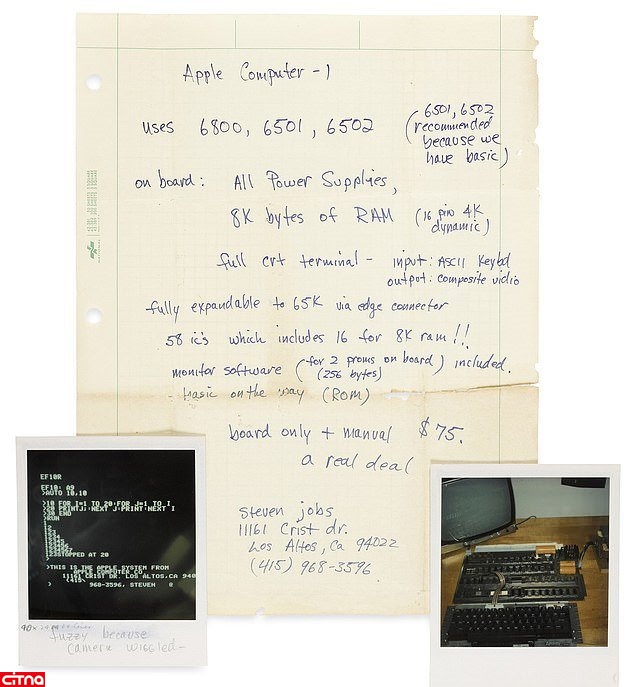 Apple Computer - 1
uses 6800, 6501, 6502
(6501, 6502
recommended
because we
have basic)
on board: All Power Supplies,
8K bytes of RAM (16 pin 4K
dynamic)
full crt terminal - input: ASCII Keybd
output: composite vidio
fully expandable to 65K via edge connector
58 ic's which includes 16 for 8K ram!!
monitor software (for 2 proms on board) included.
(256 bytes)
- basic on the way (ROM)
board only + manual $75.
a real deal
steven jobs
11161 Crist dr.
Los Altos, Ca 94022
(415) 968-3596.
EF10R
EF10: A9
>AUTO 10,10
>10 FOR I=1 TO 20:FOR J=1 TO I
>20 PRINT J;:NEXT J:PRINT:NEXT I
>30 END
>RUN
STOPPED AT 20
>THIS IS THE APPLE SYSTEM FROM
APPLE COMPUTER CO.
11161 CRIST DR. LOS ALTOS,CA 940
(415)
968-3596, STEVEN @
fuzzy because
camera wiggled-
citna